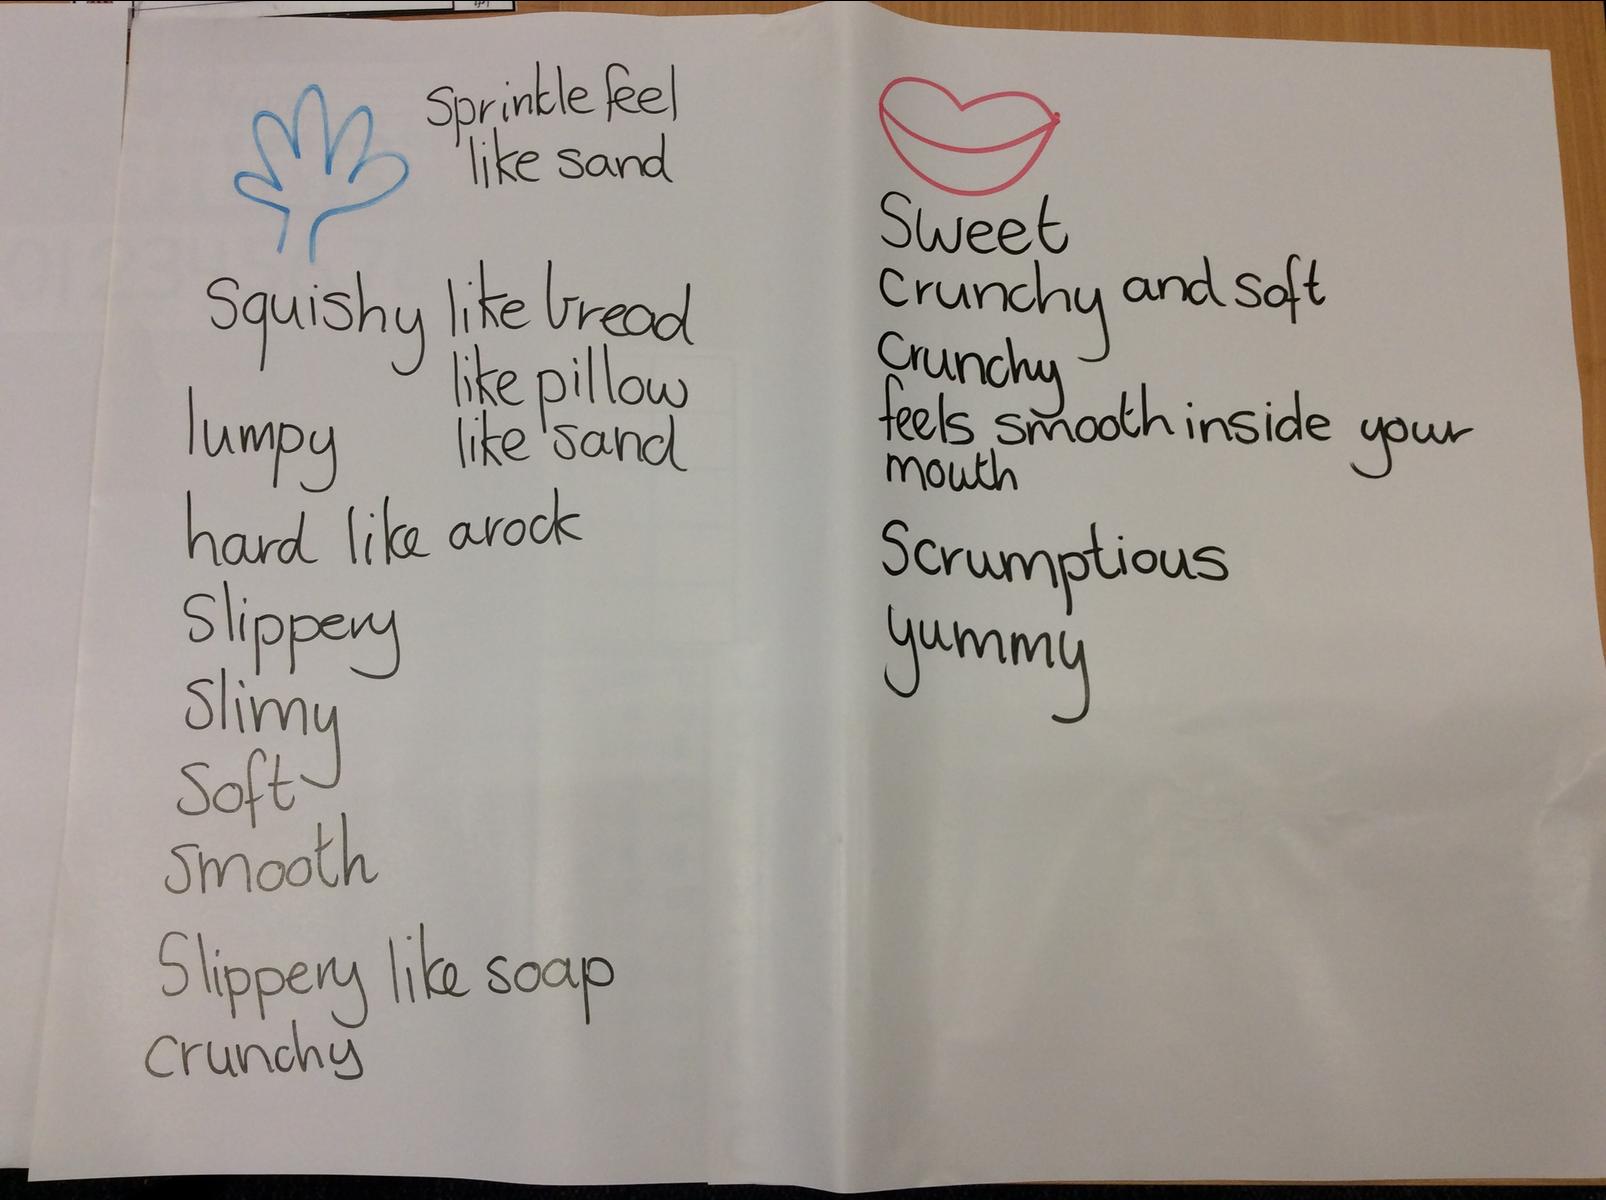 Sprinkle feel
like sand
Squishy like bread
like pillow
lumpy like sand
hard like a rock
Slippery
Slimy
Soft
Smooth
Slippery like soap
crunchy
Sweet
Crunchy and soft
Crunchy
feels smooth inside your
mouth
Scrumptious
yummy